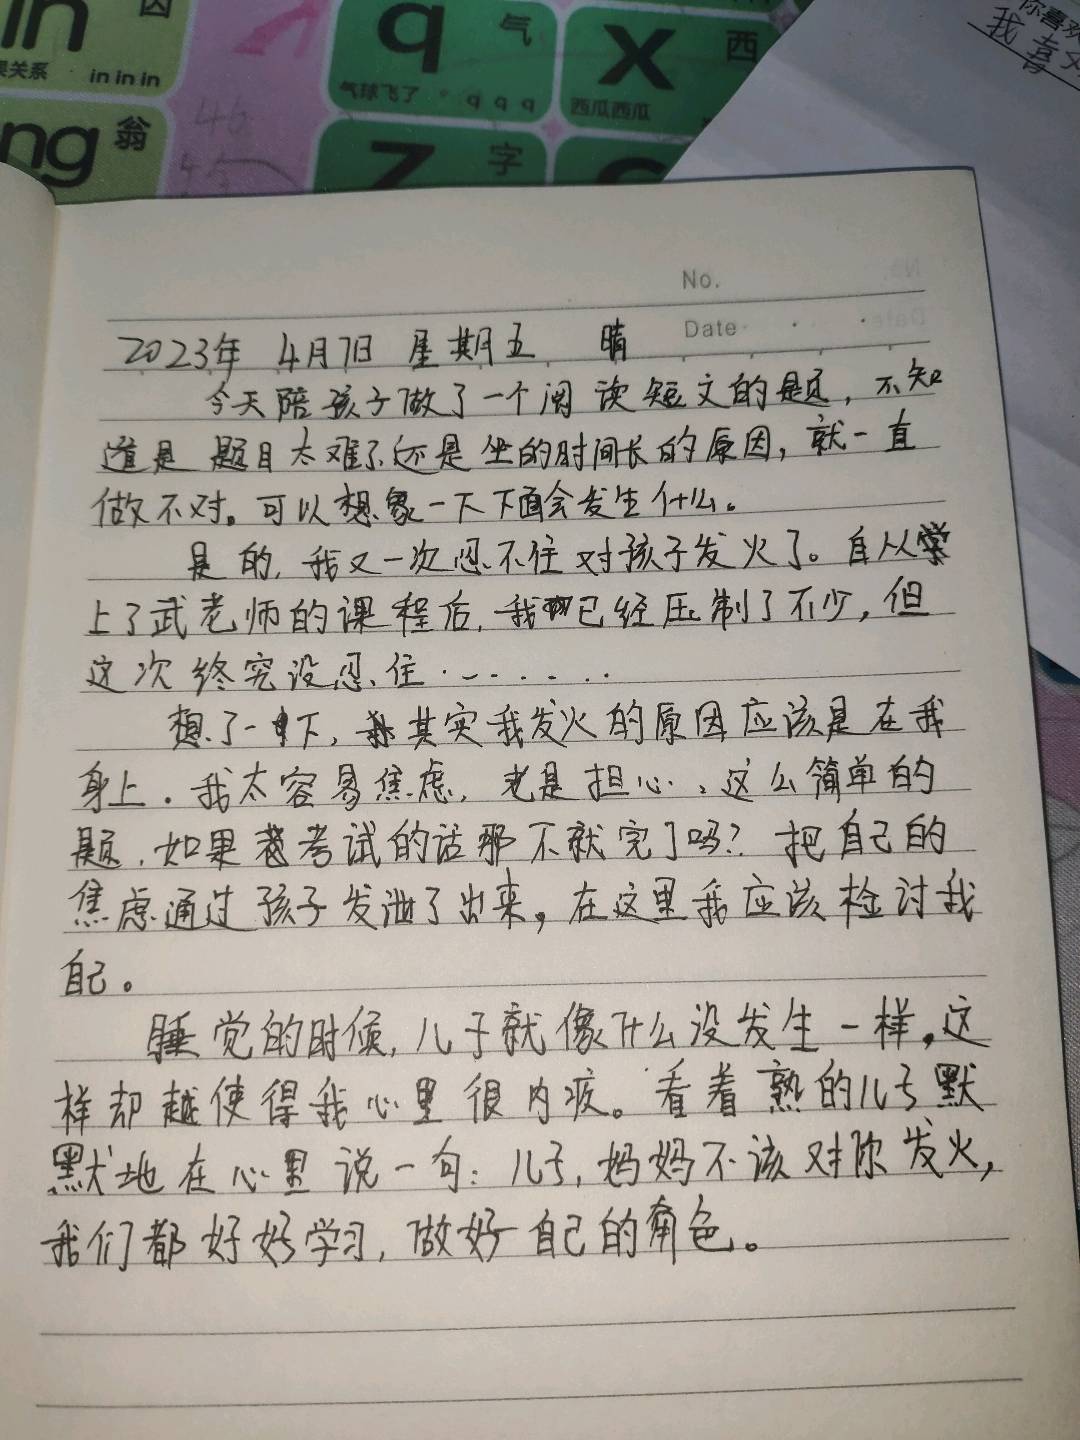 in
因
果关系
in in in
q
气
气球飞了
q q q
x
西
西瓜西瓜
ng
翁
46
z
字
你喜欢
我喜欢
No.
Date
2023年 4月7日 星期五 晴
今天陪孩子做了一个阅读短文的题，不知
道是题目太难了还是坐的时间长的原因，就一直
做不对。可以想象一下下面会发生什么。
是的，我又一次忍不住对孩子发火了。自从
上了武老师的课程后，我已经压制了不少，但
这次终究没忍住········
想了一下，其实我发火的原因应该是在我
身上。我太容易焦虑，老是担心，这么简单的
题，如果考试的话那不就完了吗？把自己的
焦虑通过孩子发泄了出来，在这里我应该检讨我
自己。
睡觉的时候，儿子就像什么没发生一样，这
样却越使得我心里很内疚。看着熟的儿子默
默地在心里说一句：儿子，妈妈不该对你发火，
我们都好好学习，做好自己的角色。